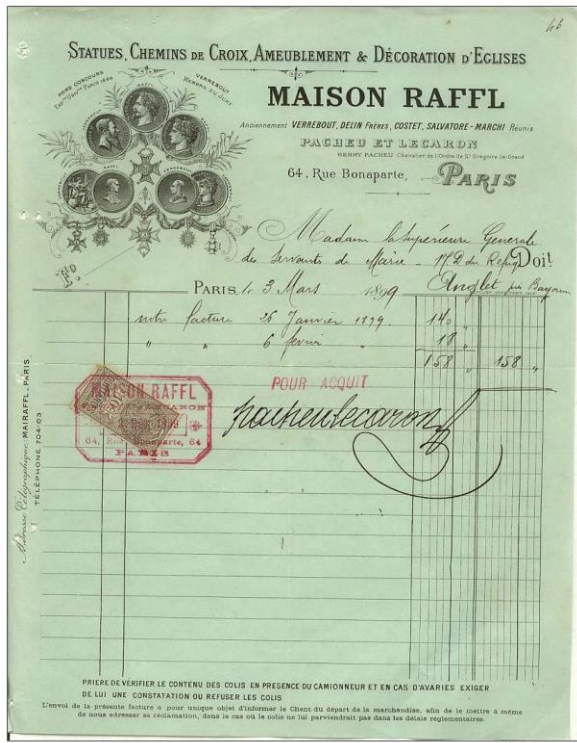 46
STATUES, CHEMINS DE CROIX, AMEUBLEMENT & DÉCORATION D'EGLISES
HORS CONCOURS
VERREBOUT
MEMBRE DU JURY
MAISON RAFFL
Anciennement VERREBOUT, DELIN FRÈRES, COSTET, SALVATORE-MARCHI Réunis
PACHEU ET LECARON
HENRY PACHEU, Chevalier de l'Ordre de St Grégoire le Grand
64, Rue Bonaparte, PARIS
Madame la Supérieure Generale
des Servantes de Marie - Nd du Refuge Doit
PARIS, le 3 Mars 1899 Anglet par Bayonne
notre facture 26 Janvier 1899 140 "
" " 6 fevrier " 18 "
158 " 158 "
POUR ACQUIT
pacheu lecaron
MAISON RAFFL
1899
64, Rue Bonaparte, 64
PARIS
Adresse Télégraphique MAIRAFFL-PARIS
TÉLÉPHONE 704-03
PRIERE DE VÉRIFIER LE CONTENU DES COLIS EN PRESENCE DU CAMIONNEUR ET EN CAS D'AVARIES EXIGER
DE LUI UNE CONSTATATION OU REFUSER LES COLIS
L'envoi de la présente facture a pour unique objet d'informer le Client du départ de la marchandise, afin de le mettre à même
de nous adresser sa réclamation, dans le cas où le colis ne lui parviendrait pas dans les délais réglementaires.